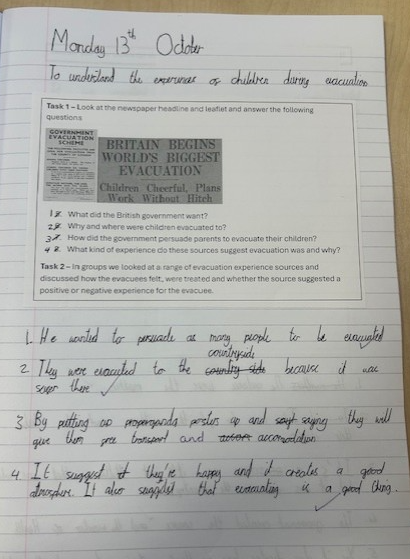 Monday 13th October
To understand the experiences of children during evacuation
Task 1 – Look at the newspaper headline and leaflet and answer the following
questions
GOVERNMENT
EVACUATION
SCHEME
BRITAIN BEGINS
WORLD'S BIGGEST
EVACUATION
Children Cheerful, Plans
Work Without Hitch
1 What did the British government want?
2 Why and where were children evacuated to?
3 How did the government persuade parents to evacuate their children?
4 What kind of experience do these sources suggest evacuation was and why?
Task 2 – In groups we looked at a range of evacuation experience sources and
discussed how the evacuees felt, were treated and whether the source suggested a
positive or negative experience for the evacuee.
1. He wanted to persuade as many people to be evacuated
countryside
2. They were evacuated to the country side because it was
safer there
3. By putting propaganda posters up and saying they will
give them free transport and accomodation
4. It suggest they're happy and it creates a good
atmosphere. It also suggest that evacuating is a good thing.